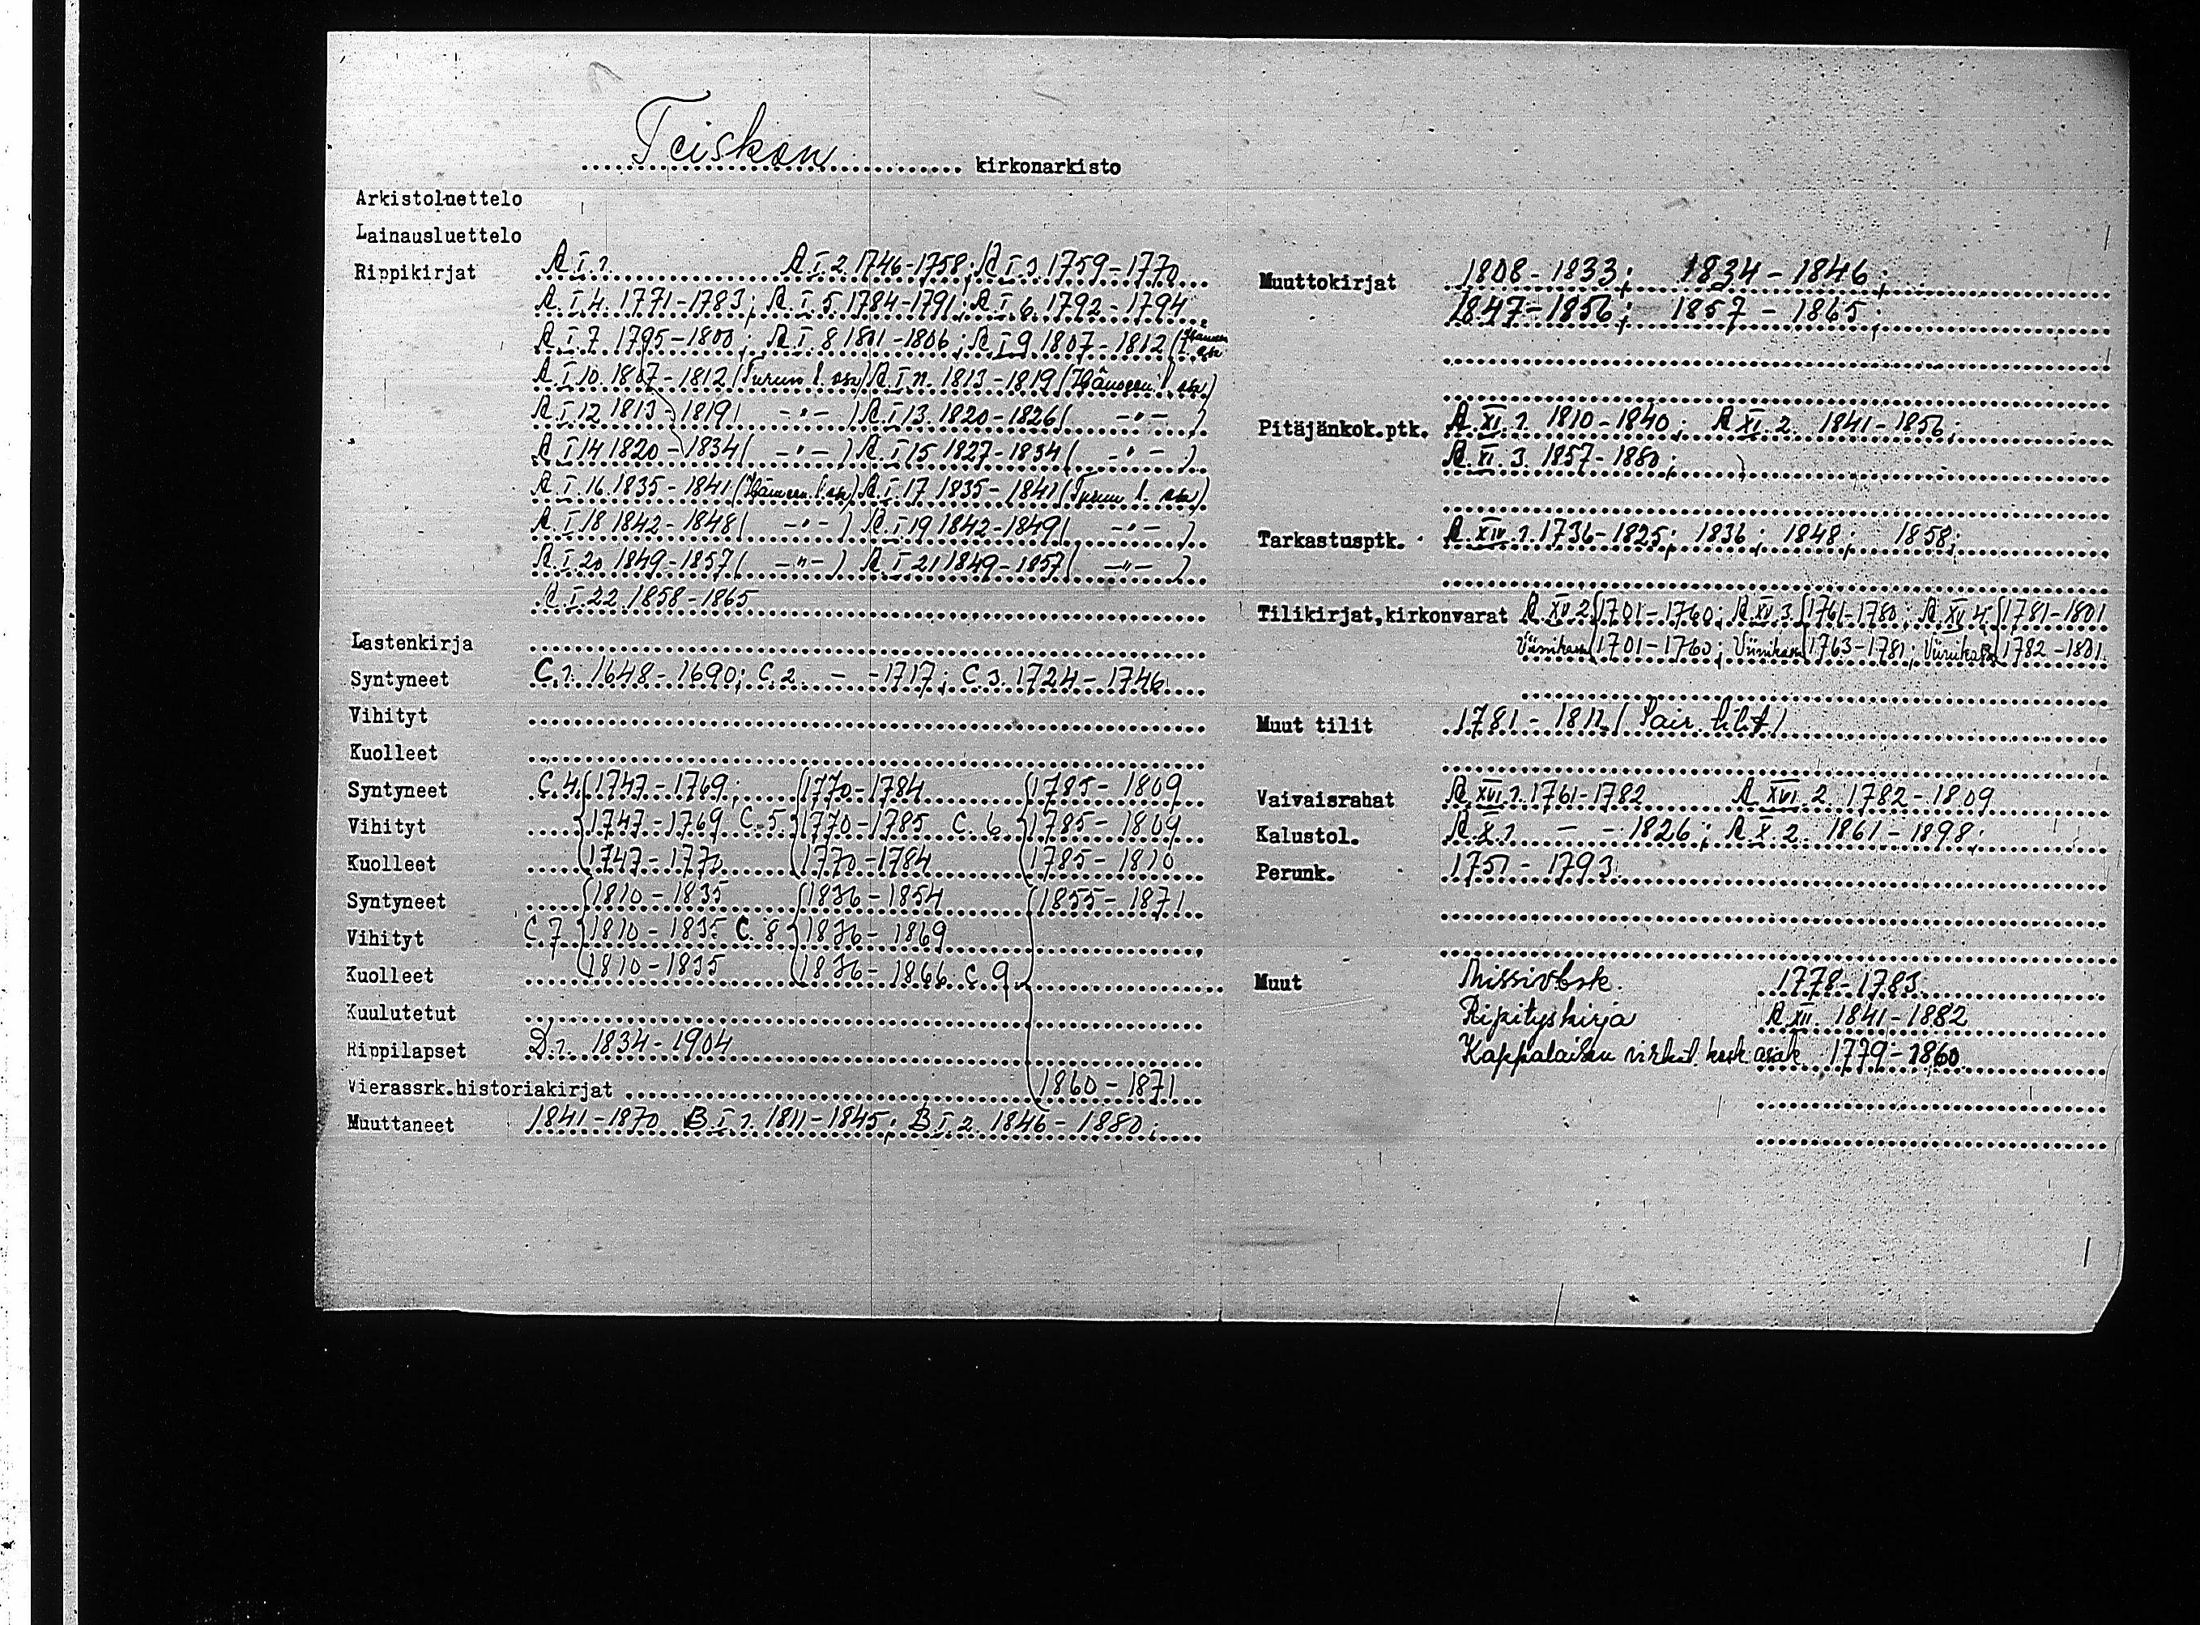 Teiskon kirkonarkisto
Arkistoluettelo
Lainausluettelo
Rippikirjat A I.1. A I.2. 1746-1758; A I.3. 1759-1770
A.I.4. 1771-1783; A.I.5. 1784-1791; A.I.6. 1792-1794
A.I.7. 1795-1800; A.I.8 1801-1806; A.I.9. 1807-1812 (Hämeen l. osa
A.I.10. 1807-1812 (Turun l. osa) A.I.11. 1813-1819 (Hämeen l. osa)
A.I.12 1813-1819 ( -"- ) A.I.13. 1820-1826 ( -"- )
A.I.14 1820-1834 ( -"- ) A.I.15 1827-1834 ( -"- )
A.I.16. 1835-1841 (Hämeen l. osa) A.I.17. 1835-1841 (Turun l. osa)
A.I.18 1842-1848 ( -"- ) A.I.19 1842-1849 ( -"- )
A.I.20 1849-1857 ( -"- ) A.I.21 1849-1857 ( -"- )
A.I.22 1858-1865
Lastenkirja
Syntyneet C.1. 1648-1690; C.2. - -1717; C 3. 1724-1746
Vihityt
Kuolleet
Syntyneet C.4. 1747-1769; 1770-1784 1785-1809
Vihityt 1747-1769 C.5. 1770-1785 C.6. 1785-1809
Kuolleet 1747-1770 1770-1784 1785-1810
Syntyneet 1810-1835 1836-1854 1855-1871
Vihityt C.7 1810-1835 C.8 1836-1869
Kuolleet 1810-1835 1836-1866 C.9
Kuulutetut
Rippilapset D.1. 1834-1904
Vierassrk.historiakirjat 1860-1871
Muuttaneet 1841-1870 B I.1. 1811-1845; B.I.2. 1846-1880;
Muuttokirjat 1808-1833; 1834-1846;
1847-1856; 1857-1865;
Pitäjänkok.ptk. A XI.1. 1810-1840; A XI.2. 1841-1856;
A.XI.3. 1857-1880;
Tarkastusptk. A XIV.1. 1736-1825; 1836; 1848; 1858;
Tilikirjat,kirkonvarat A XV 2 1701-1760; A XV 3 1761-1780; A XV 4 1781-1801
Viinikassa 1701-1760; Viinikassa 1763-1781; Viinikassa 1782-1801.
Muut tilit 1781-1811 (Sair. tilit)
Vaivaisrahat A XVI.1. 1761-1782 A XVI.2. 1782-1809
Kalustol. A.X.1. - - 1826; A X 2. 1861-1898;
Perunk. 1751-1793
Muut Missivbok. 1778-1783
Ripityskirja A XII. 1841-1882
Kappalaisen virkat. kosk. asiak. 1779-1860